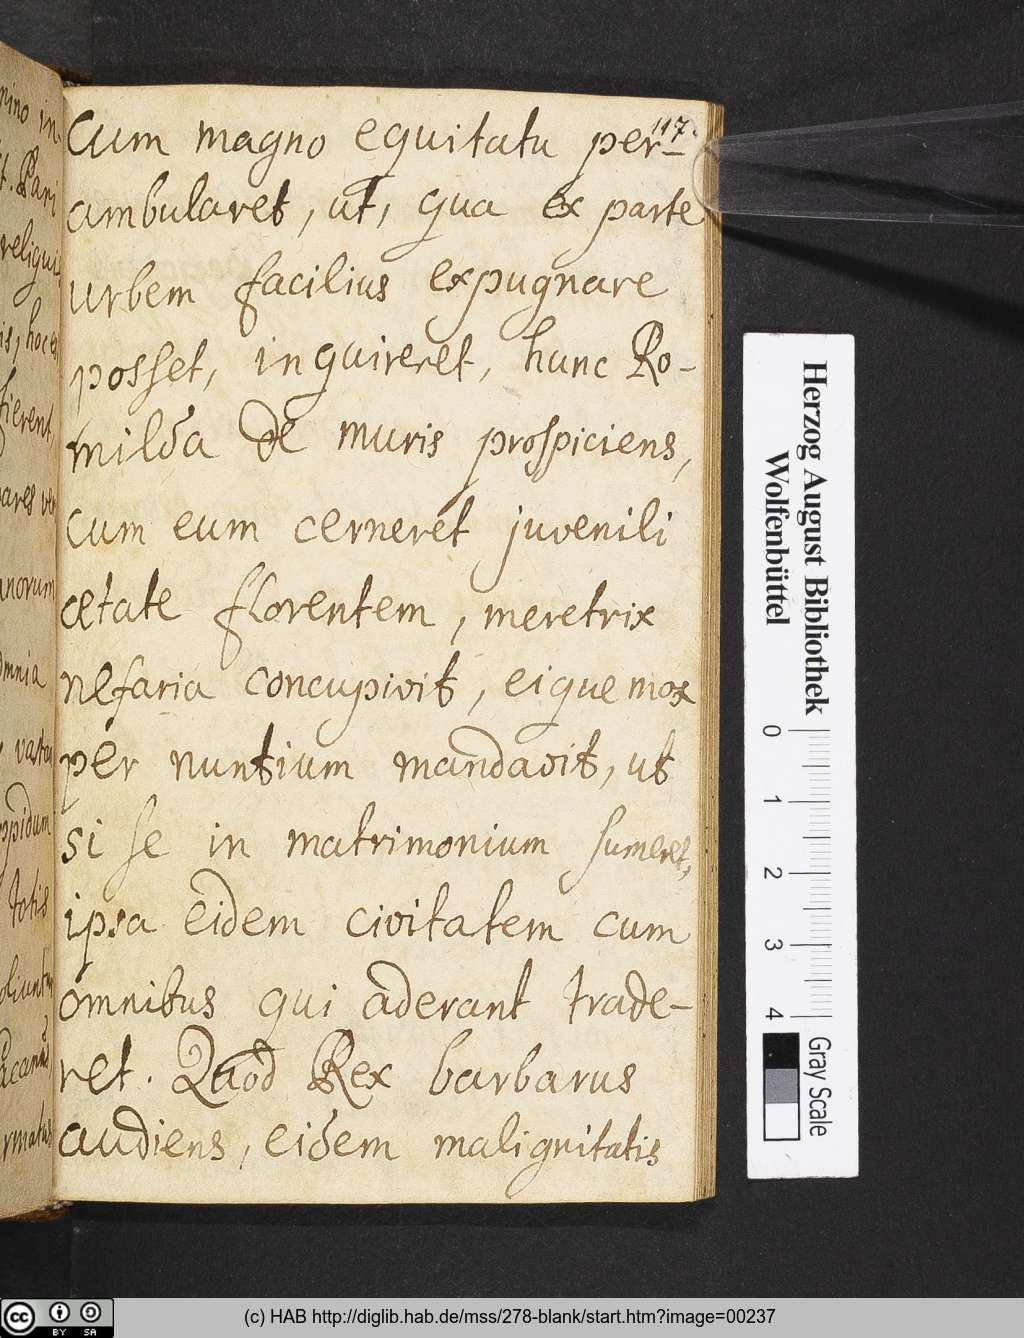 117.
Cum magno equitatu per-
ambularet, ut, qua ex parte
urbem facilius expugnare
posset, inquireret, hunc Ro-
milda de muris prospiciens,
cum eum cerneret juvenili
ætate florentem, meretrix
nefaria concupivit, eique mox
per nuntium mandavit, ut
si se in matrimonium sumeret,
ipsa eidem civitatem cum
omnibus qui aderant trade-
ret. Quod Rex barbarus
audiens, eidem malignitatis
pino in-
t. Pari
reliqui
is, hoc
fierent
ares
anorum
omnia
vasta
ppidum
totis
oliunt
acani
rmatus
Herzog August Bibliothek
Wolfenbüttel
0 1 2 3 4
Gray Scale
cc BY SA
(c) HAB http://diglib.hab.de/mss/278-blank/start.htm?image=00237